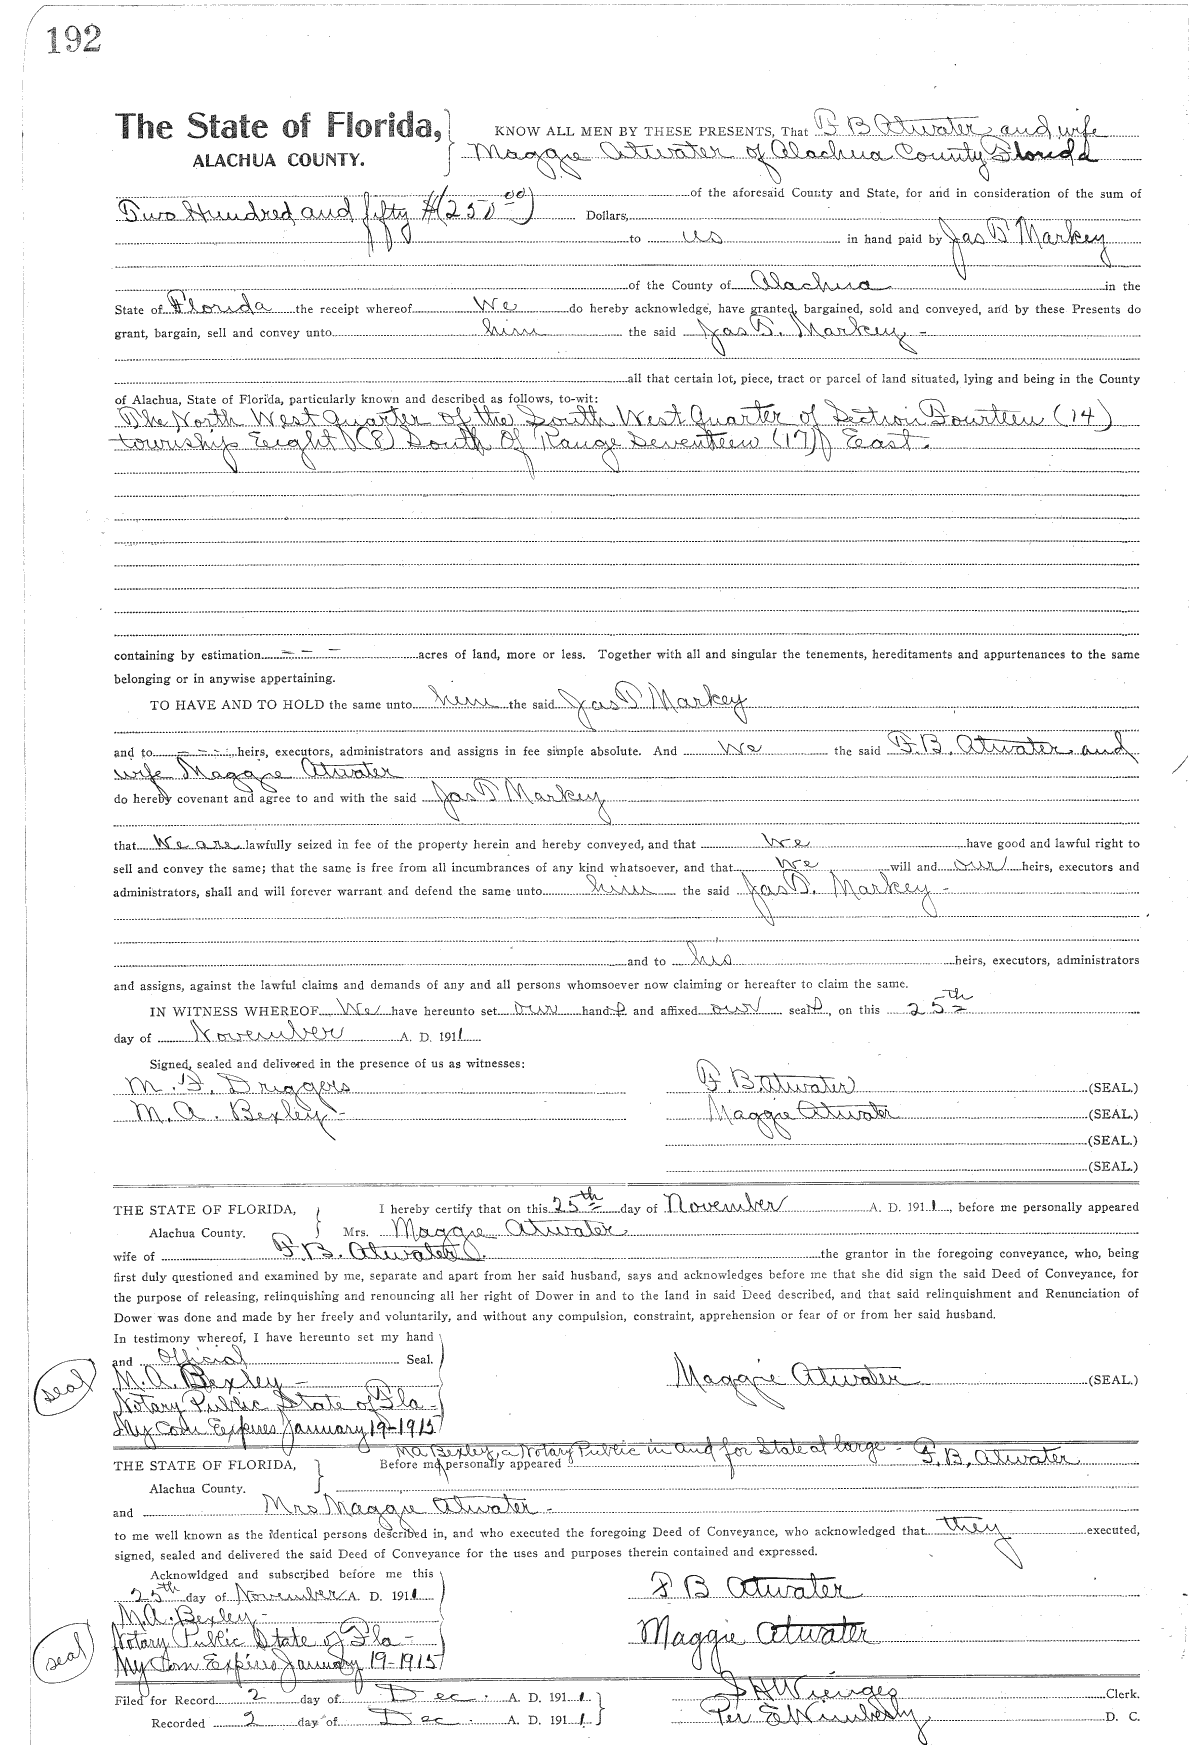 192
The State of Florida, KNOW ALL MEN BY THESE PRESENTS, That F B Atwater and wife
ALACHUA COUNTY. Maggie Atwater of Alachua County Florida
of the aforesaid County and State, for and in consideration of the sum of
Two Hundred and fifty $(250 00) Dollars,
to us in hand paid by Jas D Markey
of the County of Alachua in the
State of Florida the receipt whereof We do hereby acknowledge, have granted, bargained, sold and conveyed, and by these Presents do
grant, bargain, sell and convey unto him the said Jas D. Markey -
all that certain lot, piece, tract or parcel of land situated, lying and being in the County
of Alachua, State of Florida, particularly known and described as follows, to-wit:
The North West Quarter of the South West Quarter of Section Fourteen (14)
township Eeight (8) South of Range Seventeen (17) East.
containing by estimation - - - acres of land, more or less. Together with all and singular the tenements, hereditaments and appurtenances to the same
belonging or in anywise appertaining.
TO HAVE AND TO HOLD the same unto him the said Jas D Markey
and to - - - heirs, executors, administrators and assigns in fee simple absolute. And We the said F. B. Atwater and
wife Maggie Atwater
do hereby covenant and agree to and with the said Jas D Markey
that We are lawfully seized in fee of the property herein and hereby conveyed, and that We have good and lawful right to
sell and convey the same; that the same is free from all incumbrances of any kind whatsoever, and that We will and our heirs, executors and
administrators, shall and will forever warrant and defend the same unto him the said Jas D. Markey -
and to his heirs, executors, administrators
and assigns, against the lawful claims and demands of any and all persons whomsoever now claiming or hereafter to claim the same.
IN WITNESS WHEREOF We have hereunto set our hands and affixed our seals, on this 25th
day of November A. D. 1911
Signed, sealed and delivered in the presence of us as witnesses:
M. F. Driggers F. B. Atwater (SEAL.)
M. A. Bexley - Maggie Atwater (SEAL.)
(SEAL.)
(SEAL.)
THE STATE OF FLORIDA, I hereby certify that on this 25th day of November A. D. 1911, before me personally appeared
Alachua County. Mrs. Maggie Atwater
wife of F. B. Atwater. the grantor in the foregoing conveyance, who, being
first duly questioned and examined by me, separate and apart from her said husband, says and acknowledges before me that she did sign the said Deed of Conveyance, for
the purpose of releasing, relinquishing and renouncing all her right of Dower in and to the land in said Deed described, and that said relinquishment and Renunciation of
Dower was done and made by her freely and voluntarily, and without any compulsion, constraint, apprehension or fear of or from her said husband.
In testimony whereof, I have hereunto set my hand
and Official Seal.
seal M. A. Bexley - Maggie Atwater (SEAL.)
Notary Public State of Fla -
My Com Expires January 19-1915
M A Bexley, a Notary Public in and for State at large - F. B. Atwater
THE STATE OF FLORIDA, Before me personally appeared
Alachua County.
and Mrs Maggie Atwater -
to me well known as the identical persons described in, and who executed the foregoing Deed of Conveyance, who acknowledged that they executed,
signed, sealed and delivered the said Deed of Conveyance for the uses and purposes therein contained and expressed.
Acknowldged and subscribed before me this
25th day of November A. D. 1911 F B Atwater
M. A. Bexley -
seal Notary Public State of Fla - Maggie Atwater
My Com Expires January 19-1915
Filed for Record 2 day of Dec. A. D. 1911 S H Wienges Clerk.
Recorded 2 day of Dec A. D. 1911 Per E Wimberly D. C.